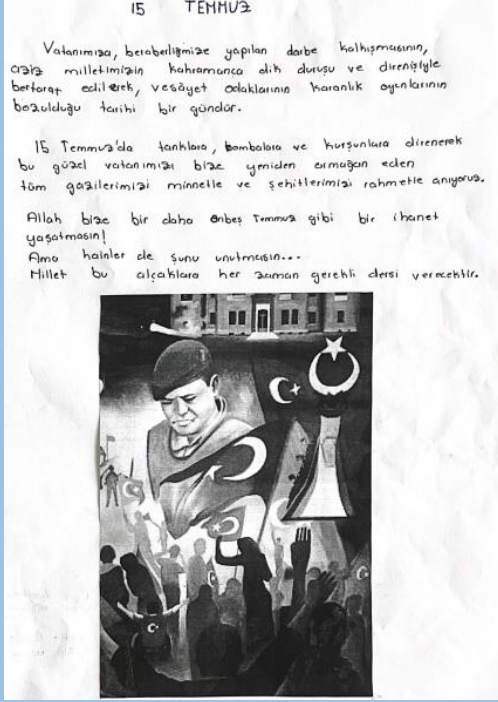 15 TEMMUZ
Vatanımıza, beraberliğimize yapılan darbe kalkışmasının,
aziz milletimizin kahramanca dik duruşu ve direnişiyle
bertaraf edilerek, vesayet odaklarının karanlık oyunlarının
bozulduğu tarihi bir gündür.
15 Temmuz'da tanklara, bombalara ve kurşunlara direnerek
bu güzel vatanımızı bize yeniden armağan eden
tüm gazilerimizi minnetle ve şehitlerimizi rahmetle anıyoruz.
Allah bize bir daha Onbeş Temmuz gibi bir ihanet
yaşatmasın!
Ama hainler de şunu unutmasın...
Millet bu alçaklara her zaman gerekli dersi verecektir.